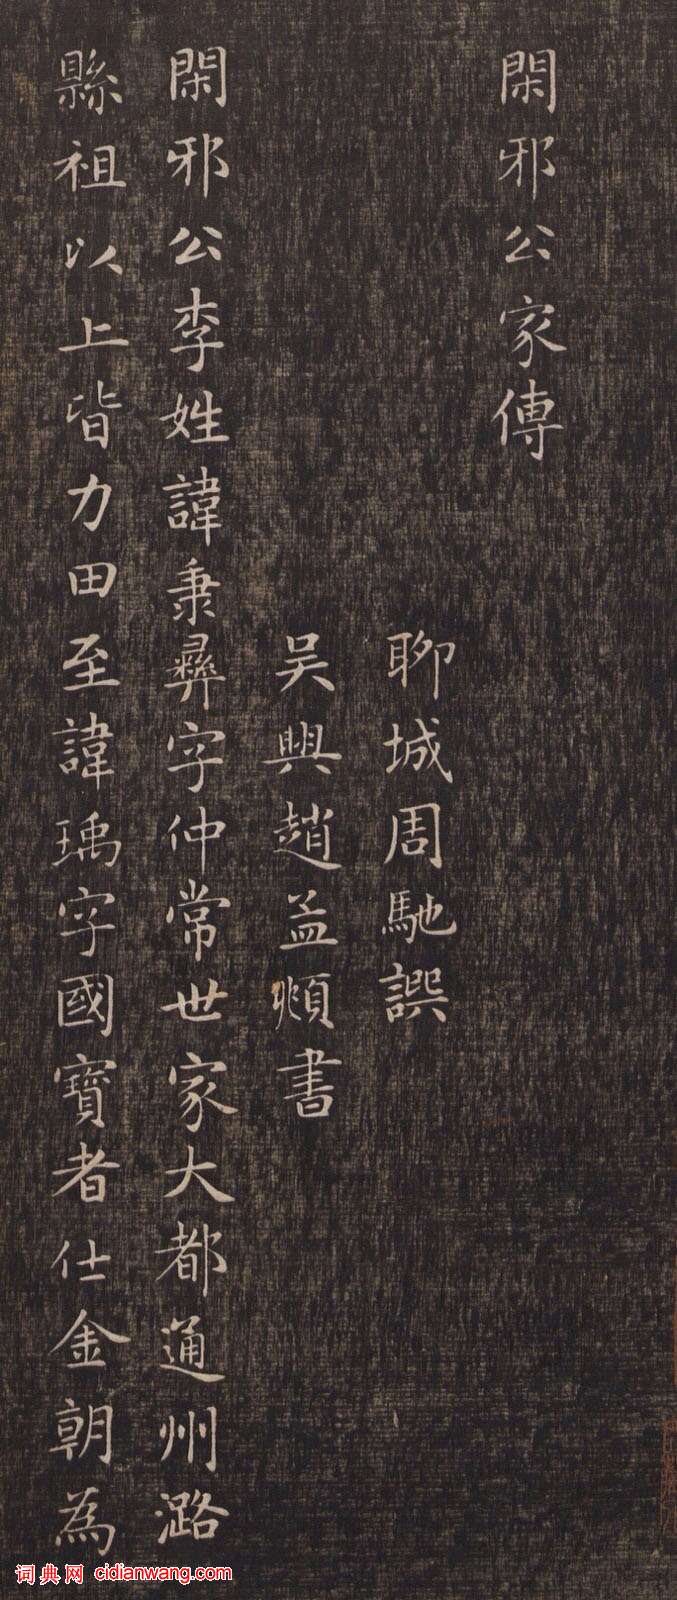 閑邪公家傳
聊城周馳譔
吴興趙孟頫書
閑邪公李姓諱秉彝字仲常世家大都通州潞
縣祖以上皆力田至諱瑀字國寶者仕金朝為
词典网 cidianwang.com